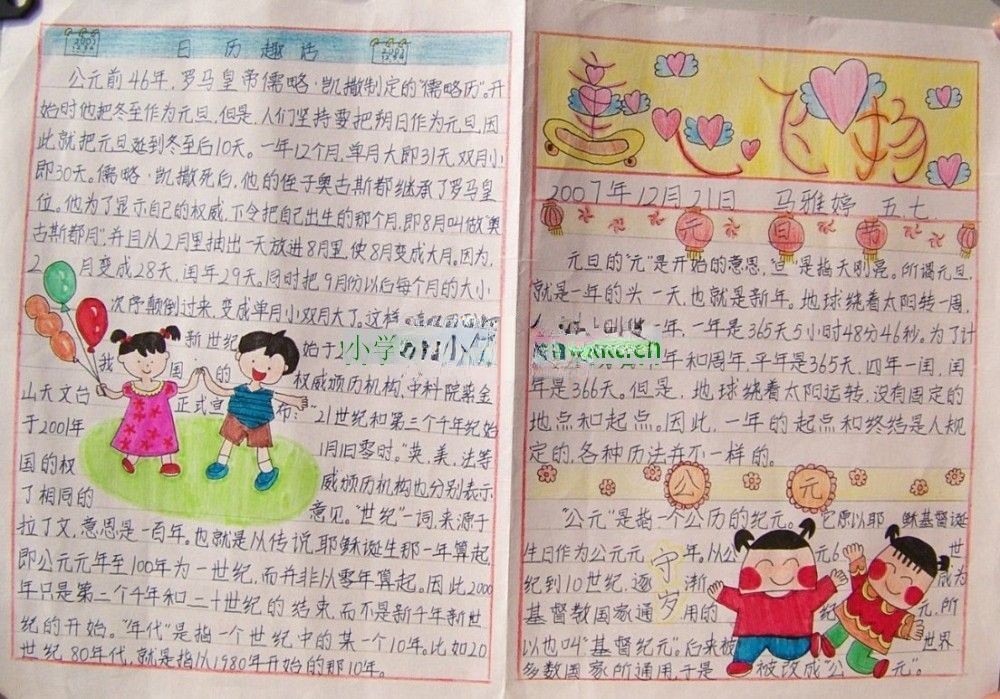 日历趣话
公元前46年,罗马皇帝儒略·凯撒制定的"儒略历"。开
始时他把冬至作为元旦,但是,人们坚持要把朔日作为元旦,因
此就把元旦延到冬至后10天。一年12个月,单月大即31天,双月小
即30天。儒略·凯撒死后,他的侄子奥古斯都继承了罗马皇
位。他为了显示自己的权威,下令把自己出生的那个月,即8月叫做"奥
古斯都月",并且从2月里抽出一天放进8月里,使8月变成大月。因为,
2月变成28天,闰年29天。同时把9月份以后每个月的大小
次序颠倒过来,变成单月小双月大了。这样
新世纪 始于
我国的 权威颁历机构,中科院紫金
山天文台 正式宣布:"21世纪和第三个千年纪始
于2001年 1月1日零时。"英,美,法等
国的权 威颁历机构也分别表示
了相同的 意见。"世纪"一词,来源于
拉丁文,意思是一百年。也就是从传说,耶稣诞生那一年算起,
即公元元年至100年为一世纪,而并非从零年算起。因此2000
年只是第二个千年和二十世纪的结束,而不是新千年新世
纪的开始。"年代"是指一个世纪中的某一个10年。比如20
世纪80年代,就是指从1980年开始的那10年。
飞扬
2007年12月21日 马雅婷 五.七.
元旦节
元旦的"元"是开始的意思,"旦"是指天刚亮。所谓元旦,
就是一年的头一天,也就是新年。地球绕着太阳转一周,
年,一年是365天5小时48分46秒。为了计
年和周年,平年是365天,四年一闰,闰
年是366天。但是,地球绕着太阳运转,没有固定的
地点和起点。因此,一年的起点和终结是人规
定的,各种历法并不一样的。
公元
"公元"是指一个公历的纪元。它原以耶稣基督诞
生日作为公元元年。从公元6世
纪到10世纪,逐渐成为
基督教国家通用的纪元,所
以也叫"基督纪元"。后来被世界
多数国家所通用,于是被改成"公元"。
守岁